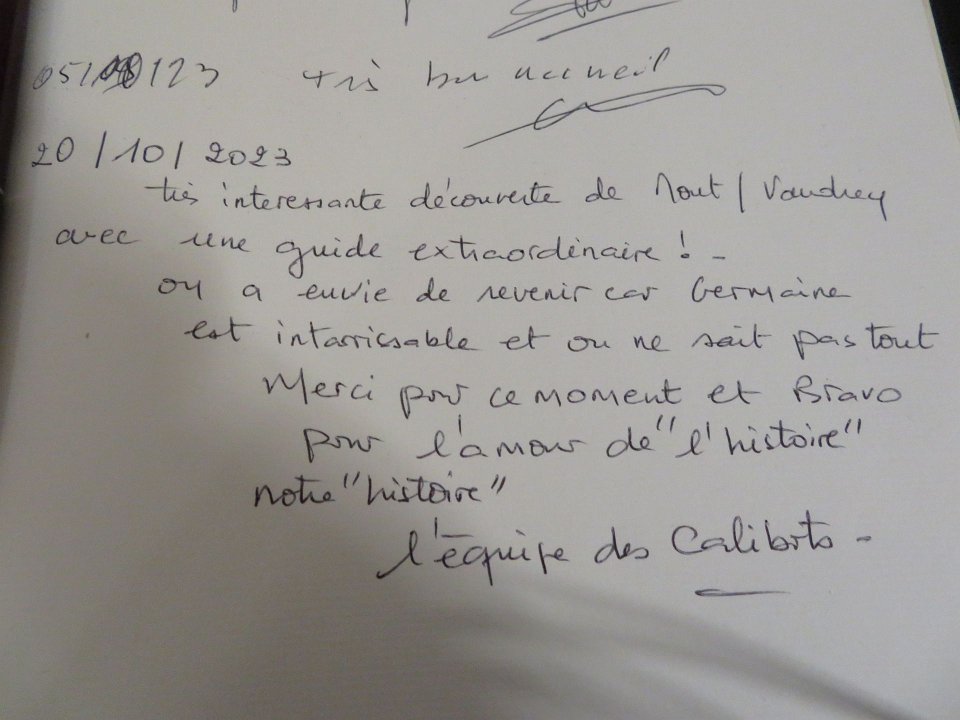 très bon accueil
20/10/2023
très interessante découverte de Mont/Vaudrey
avec une guide extraordinaire ! -
on a envie de revenir car Germaine
est intarrissable et on ne sait pas tout
Merci pour ce moment et Bravo
pour l'amour de "l'histoire"
notre "histoire"
l'équipe des -